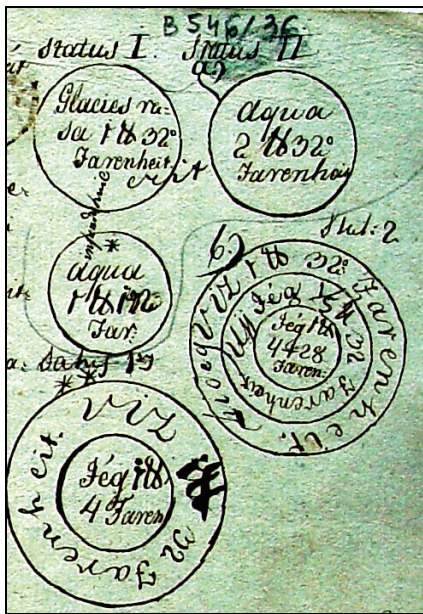 B 546/36
Status I. Status II
a)
Glacies ra-
sa 1 ℔ 32°
Farenheit.
erit
aqua
2 ℔ 32°
Farenhait
*
aqua
1 ℔
Far.
Stat: 2
b)
1 ℔ 32° Farenheit.
Jég ℔ 32 Farenheit
Jég 1 ℔
4+28
Faren:
* *
Viz 32 Farenheit.
Jég 1 ℔
4 Faren